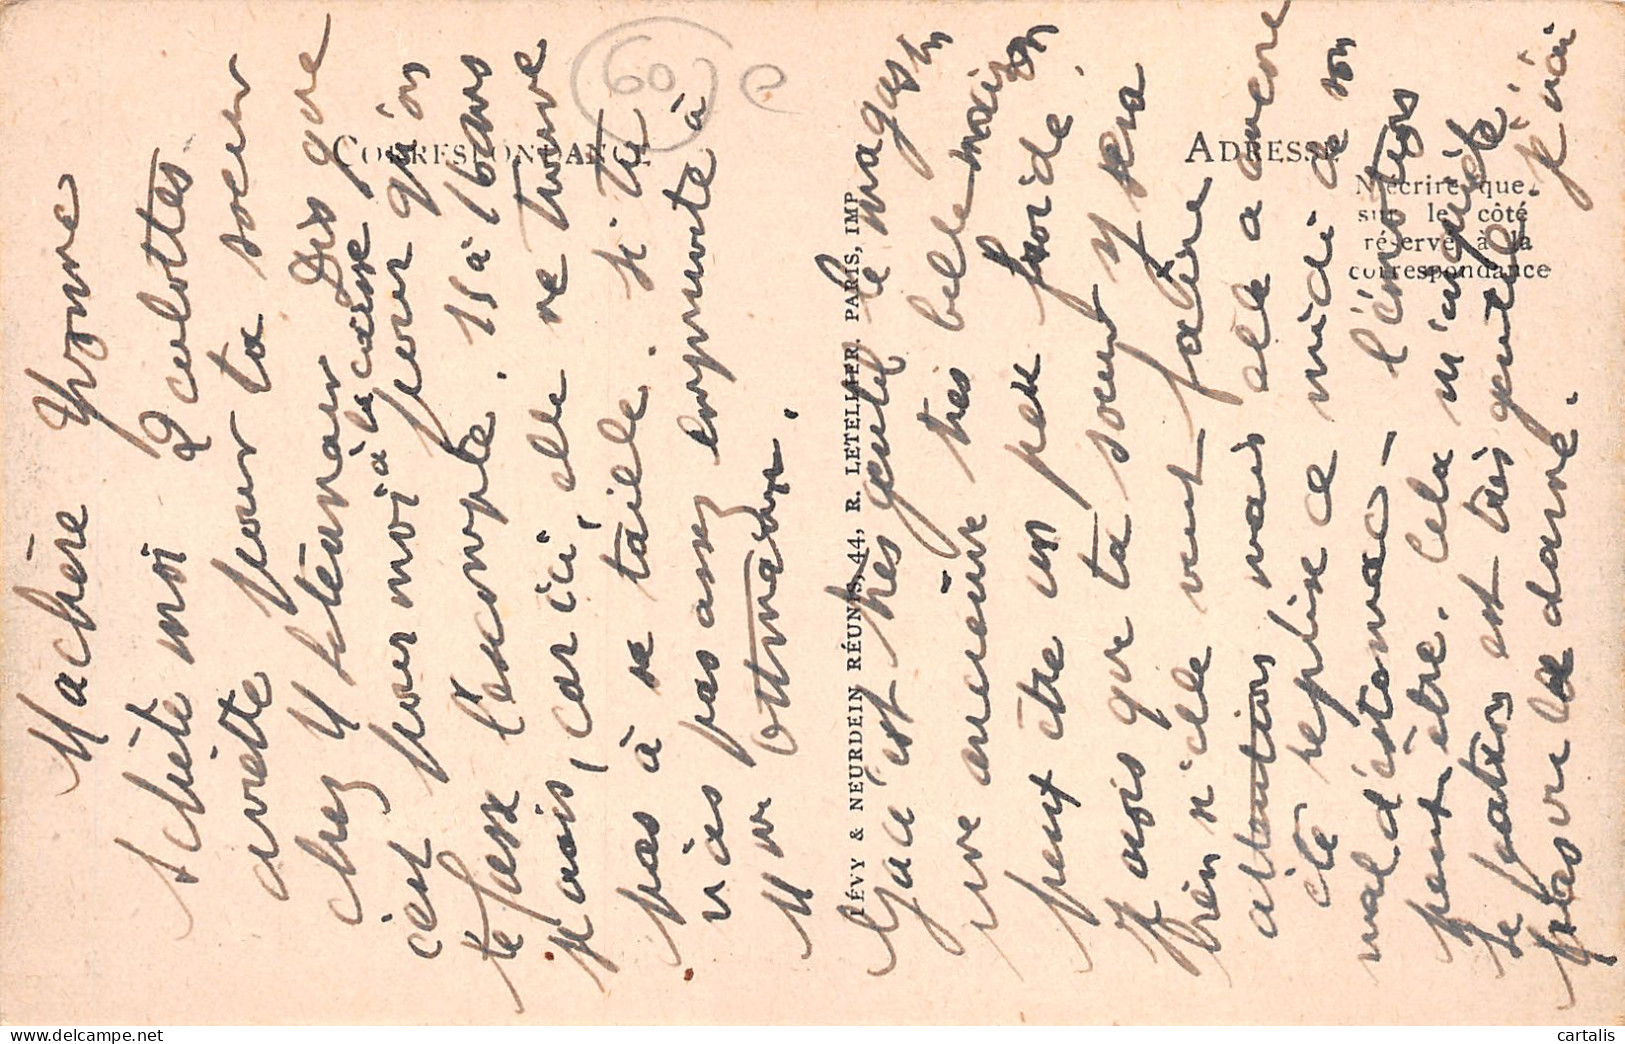 60
CORRESPONDANCE
ADRESSE
N'écrire que
sur le côté
réservé à la
correspondance
LÉVY & NEURDEIN RÉUNIS, 44, R. LETELLIER, PARIS, IMP
Ma chère Yvonne
Achète moi 2 culottes
avette pour ta sœur
chez Mr Dis que
c'est pour moi à la caisse
pour moi pour qu'on
te fasse l'escompte. 15 à 16 ans
mais, car ici, elle ne trouve
pas à sa taille. si tu
n'as pas assez emprunte à
Mr
Ga c'est très gentil le magasin
une ancienne très belle maison
peut être un peu froide.
Je crois que ta sœur y sera
bien si elle veut faire
attention mais elle a encore
été reprise ce midi de son
mal d'estomac - l'émotion
peut-être. Cela m'inquiète.
Le patron est très gentil j'ai
pas vu la dame.